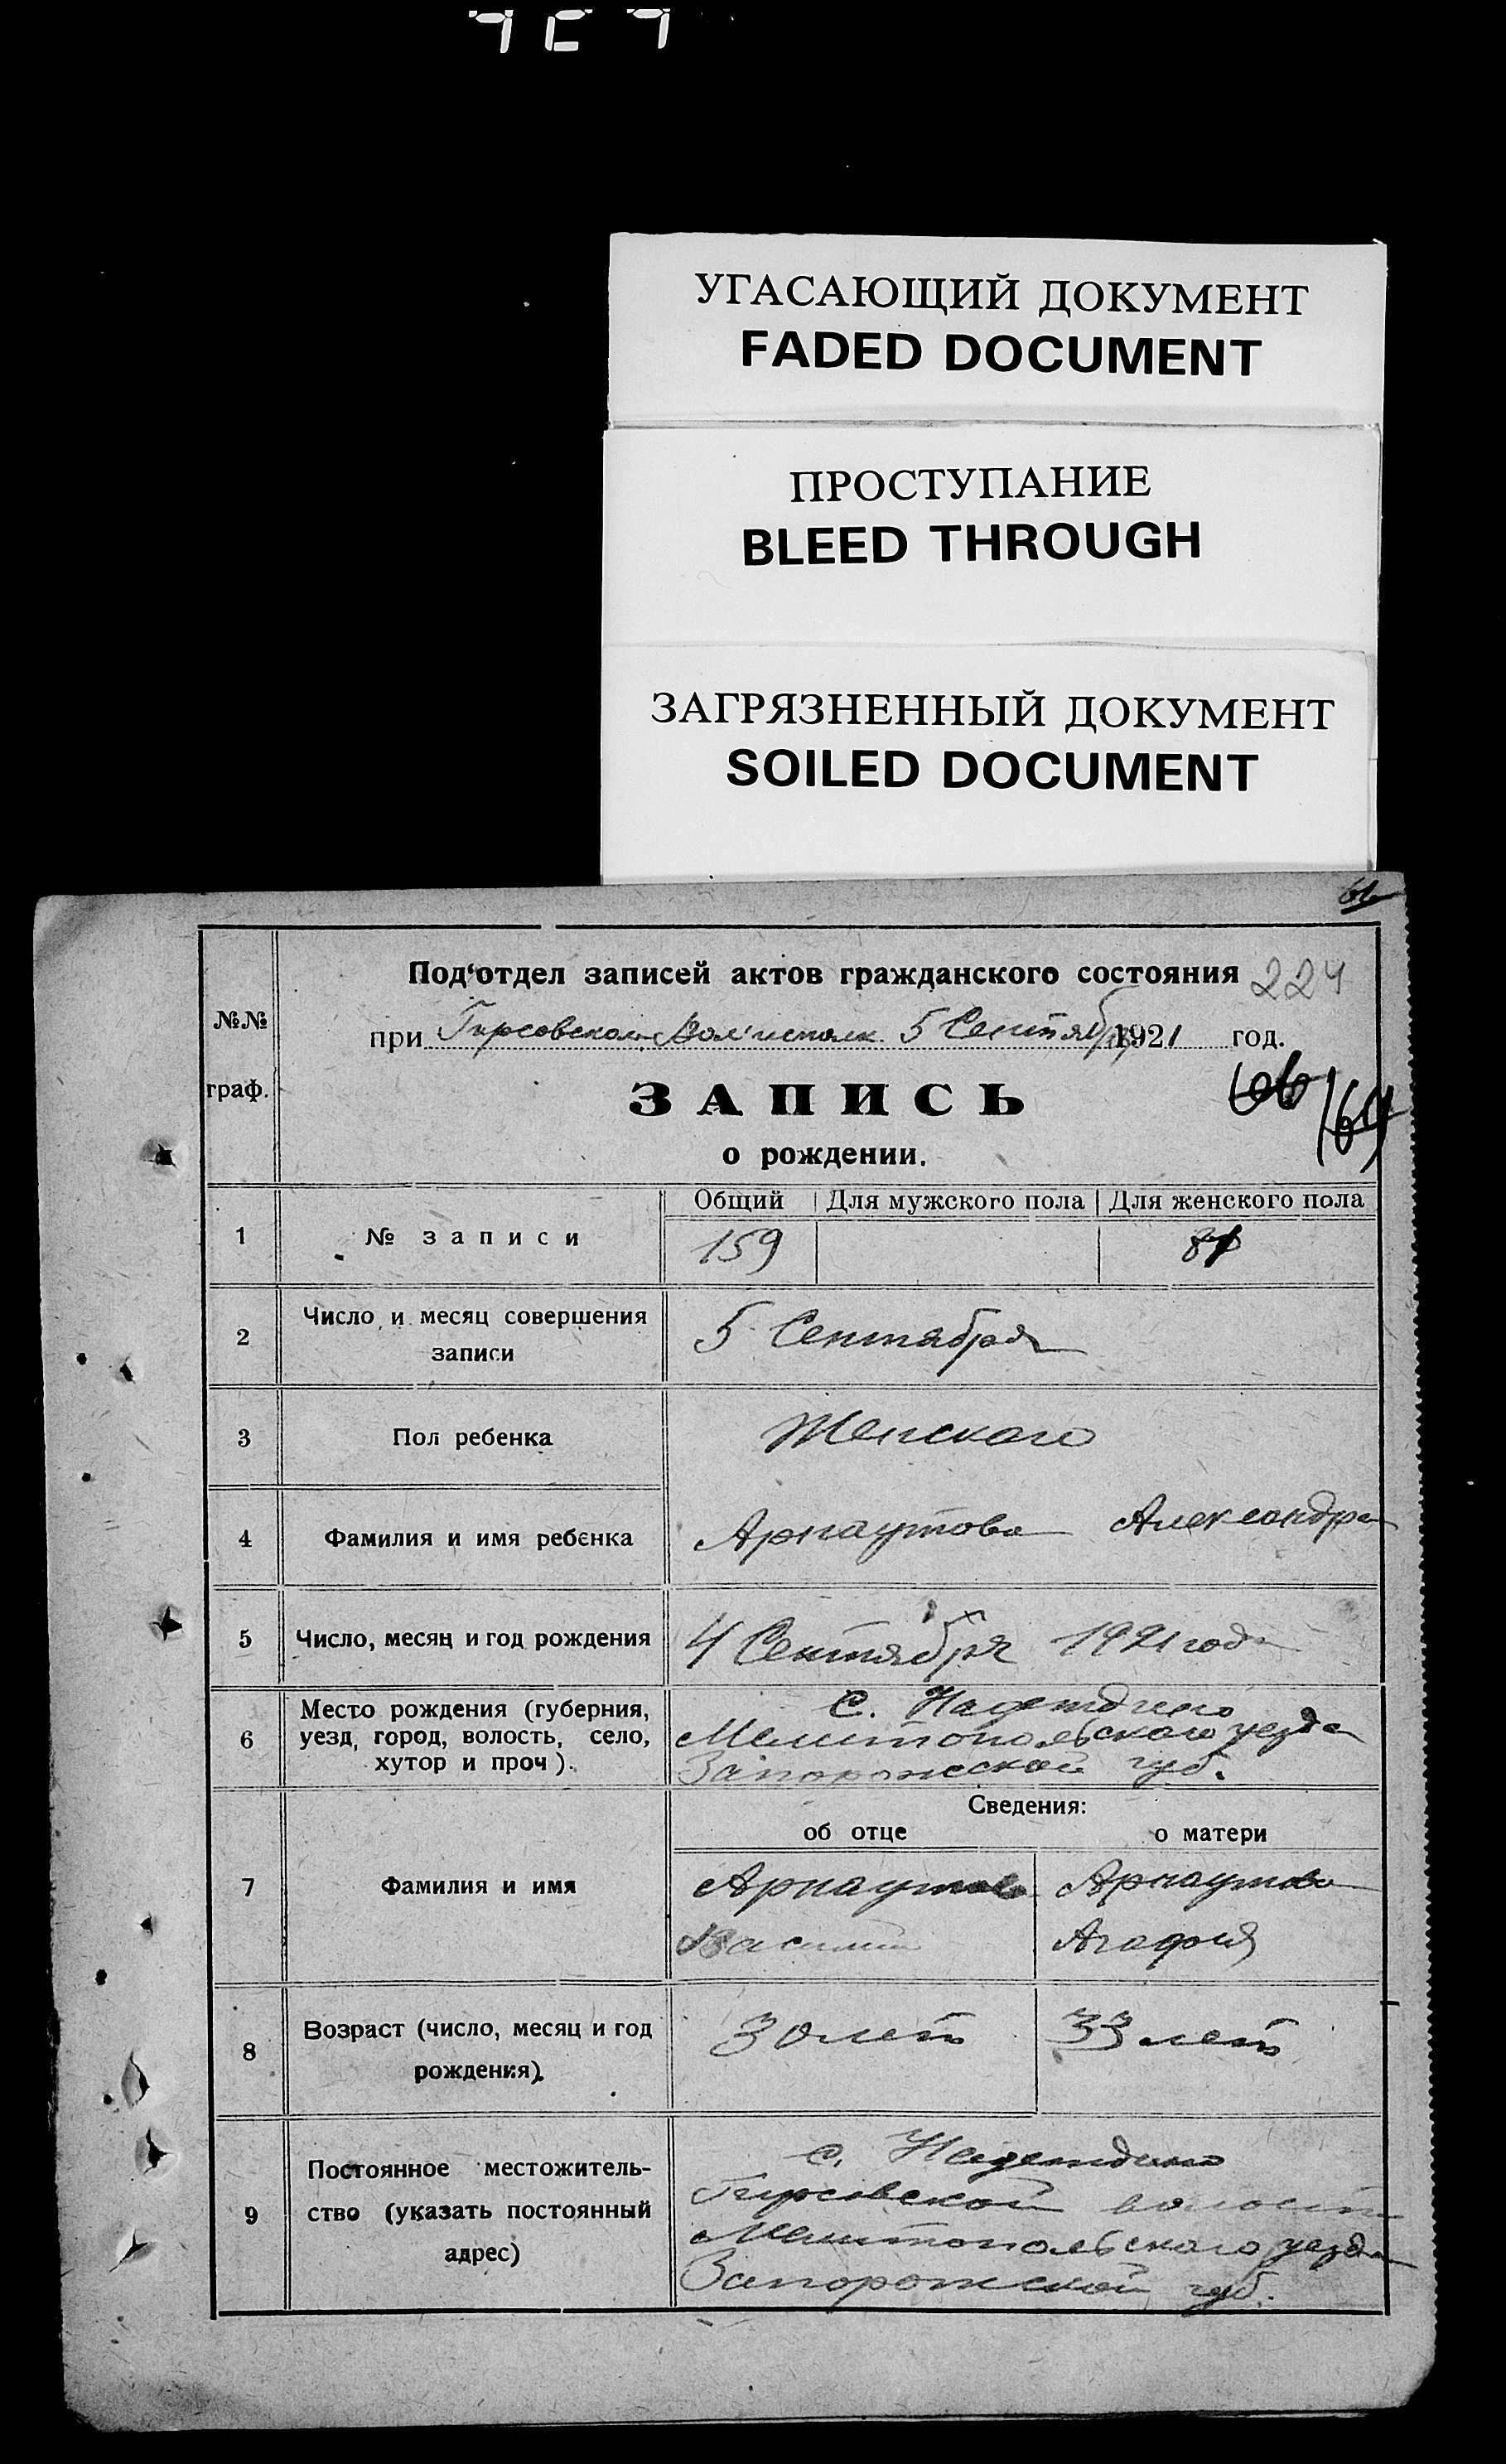 УГАСАЮЩИЙ ДОКУМЕНТ
FADED DOCUMENT
ПРОСТУПАНИЕ
BLEED THROUGH
ЗАГРЯЗНЕННЫЙ ДОКУМЕНТ
SOILED DOCUMENT
№№ граф.
Под‘отдел записей актов гражданского состояния 224
при Гирсовском Вол'исполк. 5 Сентября 1921 год.
ЗАПИСЬ
66
169
о рождении.
Общий Для мужского пола Для женского пола
1 № записи 159
2 Число и месяц совершения записи 5 Сентября
3 Пол ребенка Женского
4 Фамилия и имя ребенка Арнаутова Александра
5 Число, месяц и год рождения 4 Сентября 1921 года
6 Место рождения (губерния, уезд, город, волость, село, хутор и проч). с. Надеждино
Мелитопольского уезда
Запорожской губ.
Сведения:
об отце о матери
7 Фамилия и имя Арнаутов Арнаутова
Василий Агафия
8 Возраст (число, месяц и год рождения). 30 лет 33 лет
9 Постоянное местожительство (указать постоянный адрес) с. Надеждино
Гирсовской волости
Мелитопольского уезда
Запорожской губ.